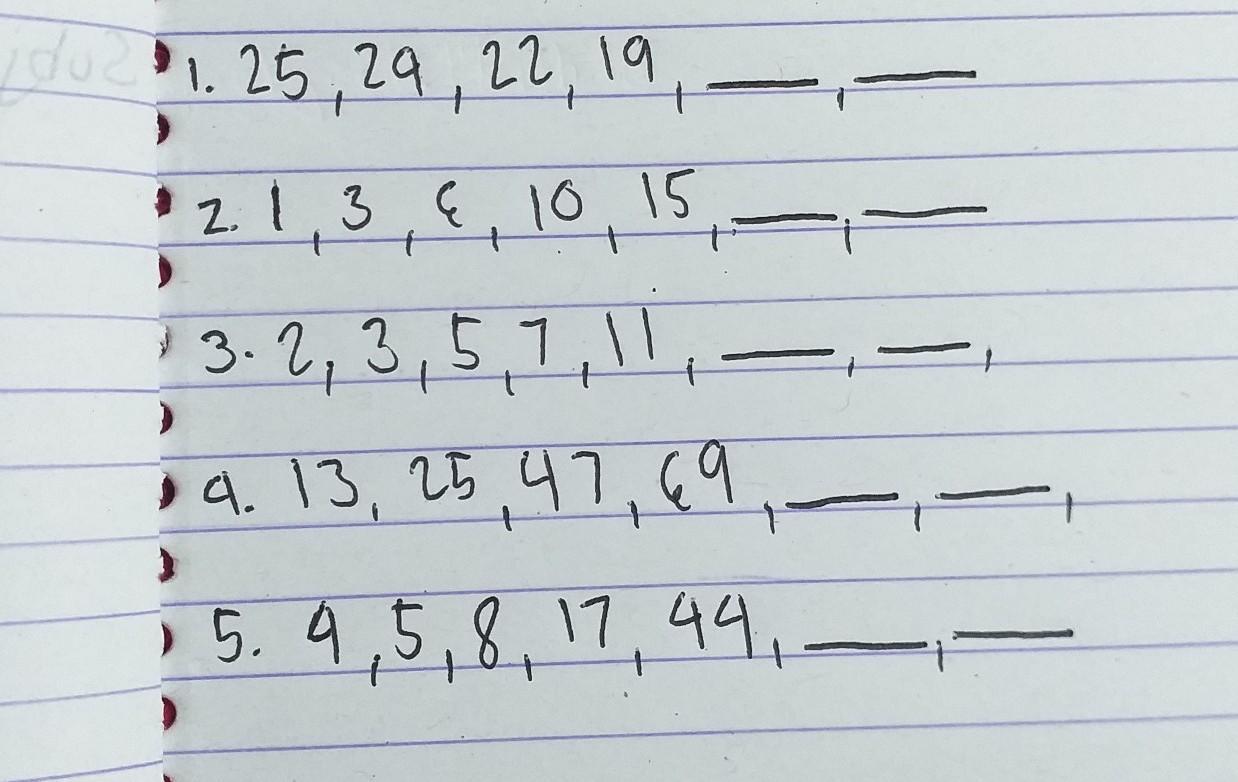 1. 25, 24, 22, 19, ___, ___
2. 1, 3, 6, 10, 15, ___, ___
3. 2, 3, 5, 7, 11, ___, ___,
4. 13, 25, 47, 69, ___, ___,
5. 4, 5, 8, 17, 44, ___, ___